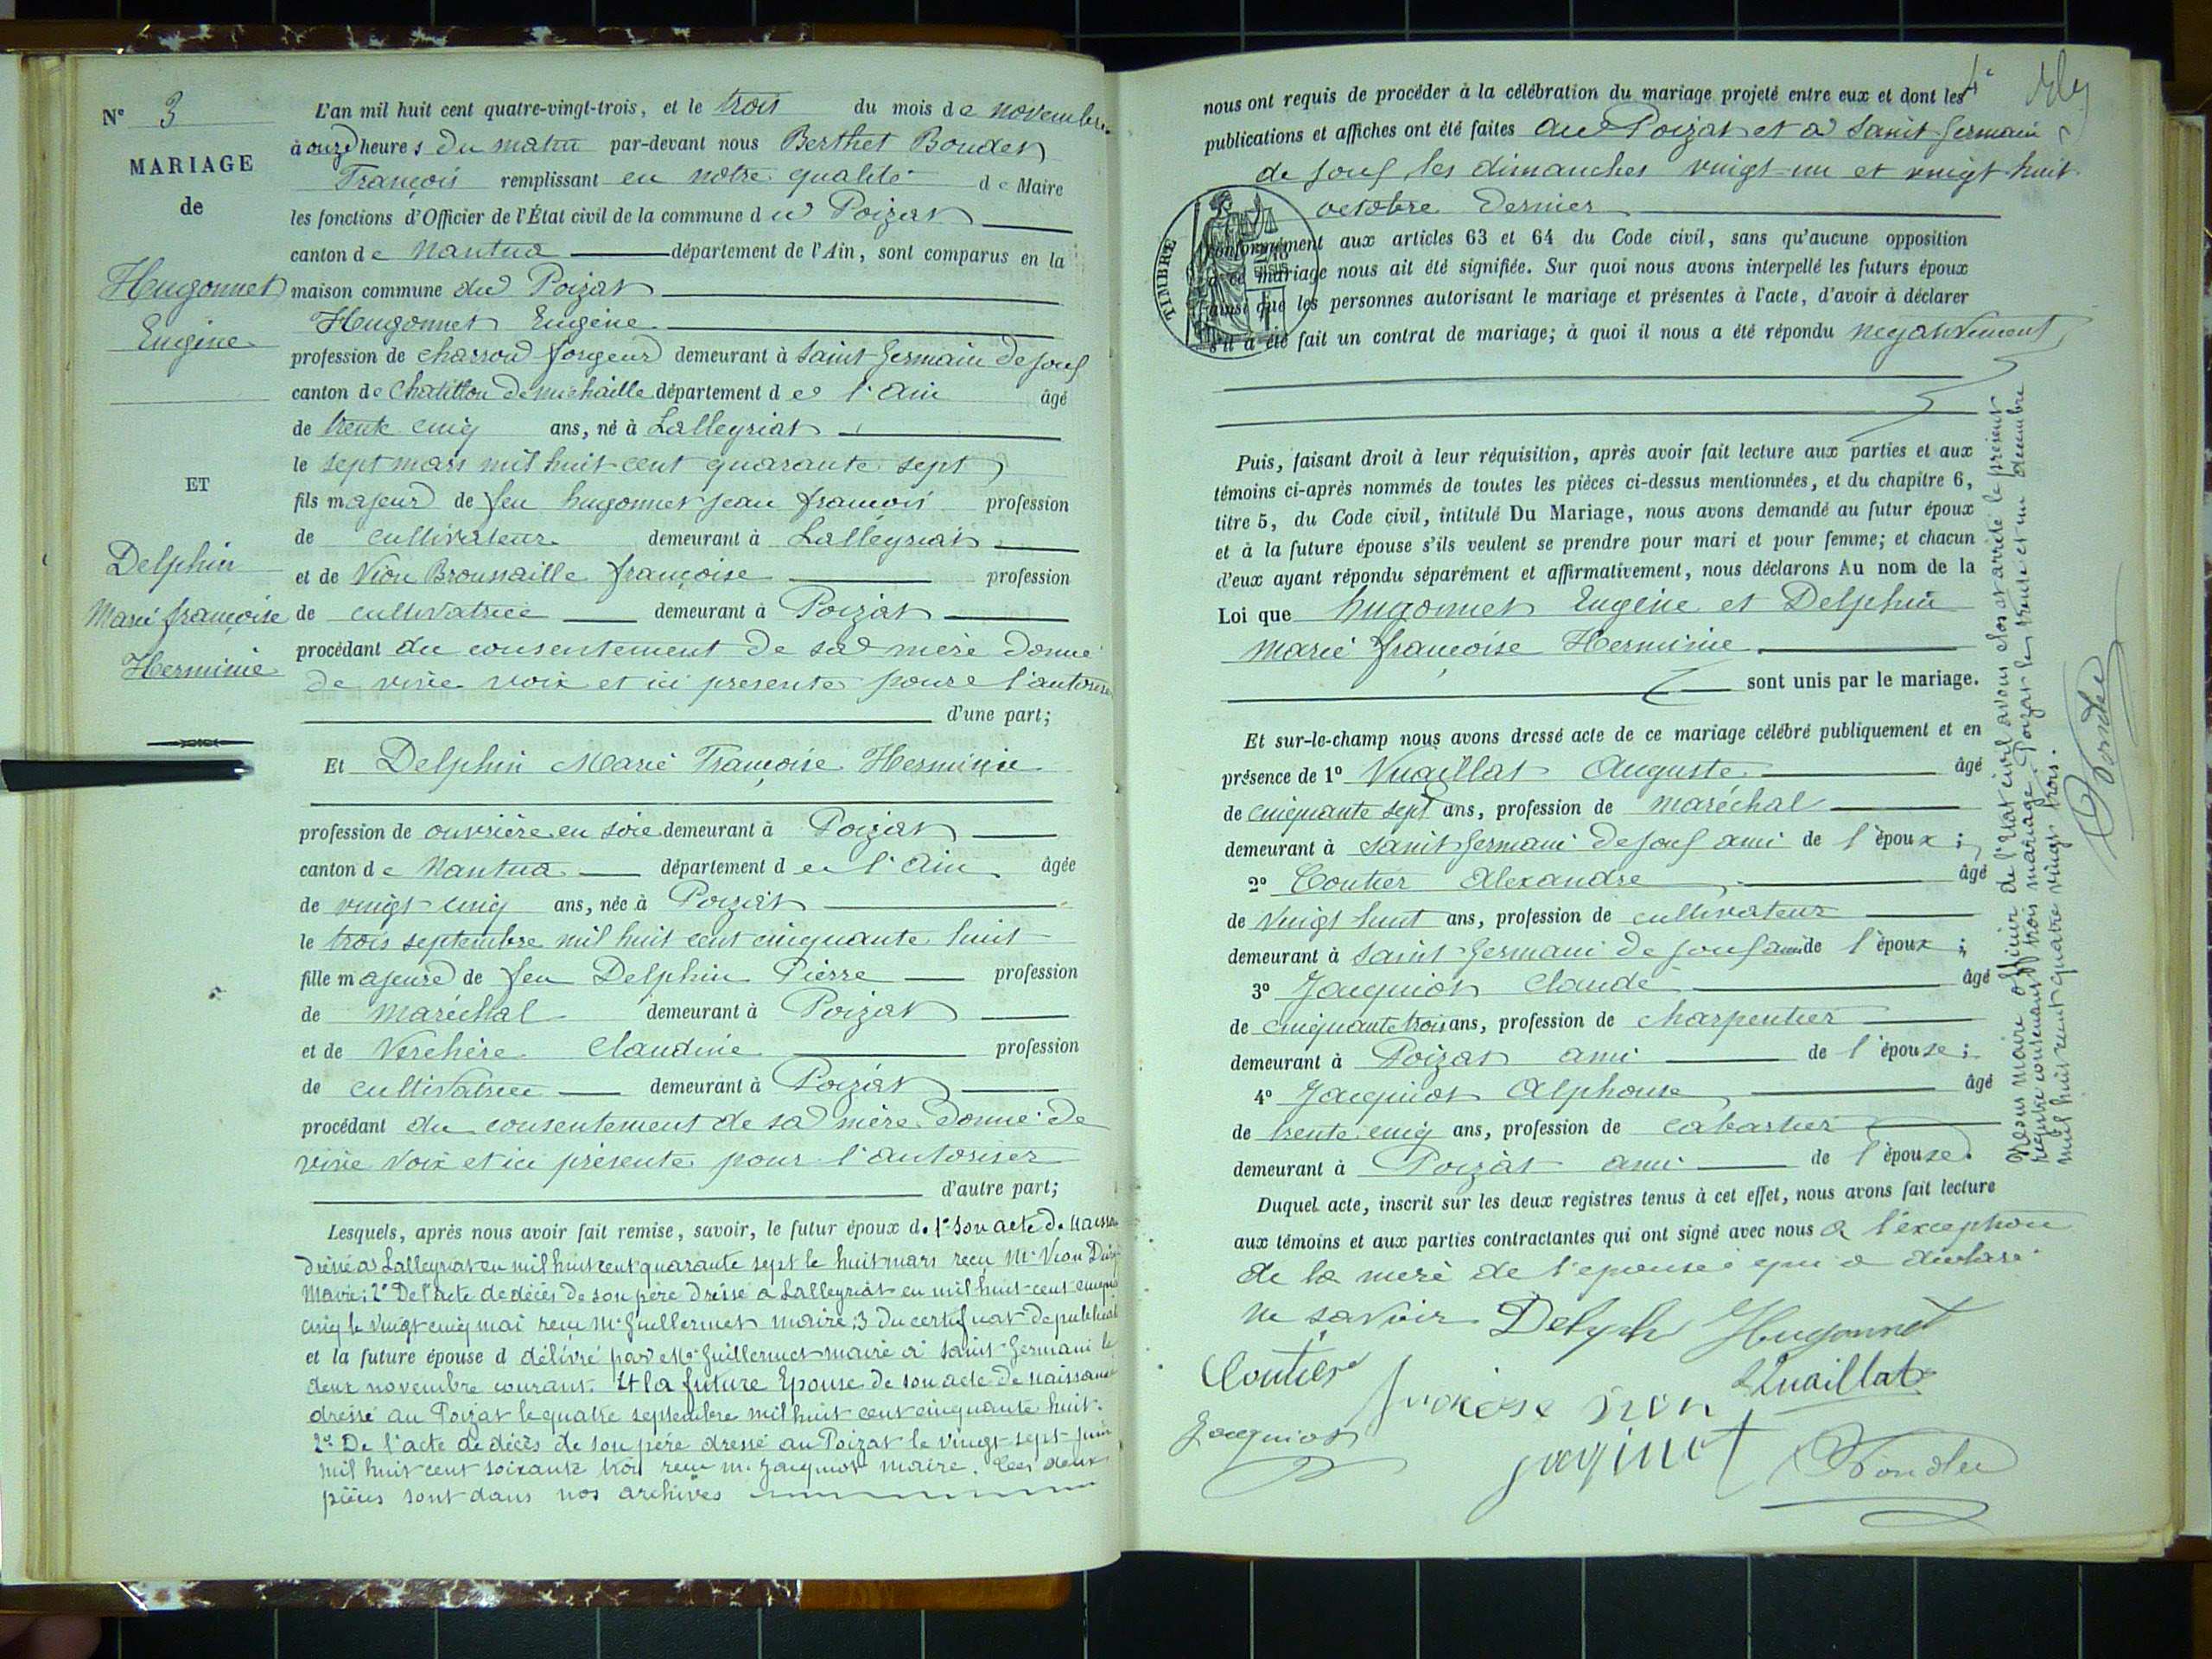 N° 3
MARIAGE
de
Hugonnet
Eugène
ET
Delphin
Marie françoise
Herminie
L'an mil huit cent quatre-vingt-trois, et le trois du mois de novembre
à onze heures du matin par-devant nous Berthet Bondet
François remplissant en notre qualité de Maire
les fonctions d'Officier de l'État civil de la commune du Poizat
canton de Nantua département de l'Ain, sont comparus en la
maison commune du Poizat
Hugonnet Eugène
profession de charron forgeur demeurant à Saint-Germain de Joux
canton de Chatillon de michaille département de l'Ain âgé
de trente cinq ans, né à Lalleyriat
le sept mars mil huit cent quarante sept
fils majeur de feu hugonnet jean françois profession
de cultivateur demeurant à Lalleyriat
et de Vion Broussaille françoise profession
de cultivatrice demeurant à Poizat
procédant du consentement de sa mère donné
de vive voix et ici presente pour l'autoriser
d'une part;
Et Delphin Marie Françoise Herminie
profession de ouvrière en soie demeurant à Poizat
canton de Nantua département de l'Ain âgée
de vingt cinq ans, née à Poizat
le trois septembre mil huit cent cinquante huit
fille majeure de feu Delphin Pierre profession
de maréchal demeurant à Poizat
et de Verchère Claudine profession
de cultivatrice demeurant à Poizat
procédant du consentement de sa mère donné de
vive voix et ici présente pour l'autoriser
d'autre part;
Lesquels, après nous avoir fait remise, savoir, le futur époux de 1° Son acte de naissan
dréssé à Lalleyriat en mil huit cent quarante sept le huit mars reçu Mr Vion
Maire; 2° De l'acte de décés de son père dréssé a Lalleyriat en mil huit cent cinqua
cinq le vingt cinq mai reçu Mr Guillermet maire; 3 du certificat de publicat
et la future épouse d délivré par Mr Guillermet maire à saint-Germain le
deux novembre courant. Et la future Epouse de son acte de naissance
dressé au Poizat le quatre septembre mil huit cent cinquante huit.
2° De l'acte de décès de son père dressé au Poizat le vingt-sept juin
mil huit cent soixante trois reçu m. Jacquiot maire. Ces deux
pièces sont dans nos archives
nous ont requis de procéder à la célébration du mariage projeté entre eux et dont les
publications et affiches ont été faites au Poizat et à Saint Germain
de joux les dimanches vingt-un et vingt-huit
octobre dernier
TIMBRE
conformément aux articles 63 et 64 du Code civil, sans qu'aucune opposition
à ce mariage nous ait été signifiée. Sur quoi nous avons interpellé les futurs époux
ainsi que les personnes autorisant le mariage et présentes à l'acte, d'avoir à déclarer
s'il a été fait un contrat de mariage; à quoi il nous a été répondu negativement
Puis, faisant droit à leur réquisition, après avoir fait lecture aux parties et aux
témoins ci-après nommés de toutes les pièces ci-dessus mentionnées, et du chapitre 6,
titre 5, du Code civil, intitulé Du Mariage, nous avons demandé au futur époux
et à la future épouse s'ils veulent se prendre pour mari et pour femme; et chacun
d'eux ayant répondu séparément et affirmativement, nous déclarons Au nom de la
Loi que hugonnet Eugène et Delphin
Marie françoise Herminie
sont unis par le mariage.
Et sur-le-champ nous avons dressé acte de ce mariage célébré publiquement et en
présence de 1° Vuaillat Auguste âgé
de cinquante sept ans, profession de maréchal
demeurant à saint germain de joux ami de l'époux;
2° Coutier Alexandre âgé
de vingt huit ans, profession de cultivateur
demeurant à saint Germain de joux ami de l'époux;
3° Jacquiot Claude âgé
de cinquante trois ans, profession de charpentier
demeurant à Poizat ami de l'épouse;
4° Jacquiot Alphonse âgé
de trente cinq ans, profession de cabartier
demeurant à Poizat ami de l'épouse.
Duquel acte, inscrit sur les deux registres tenus à cet effet, nous avons fait lecture
aux témoins et aux parties contractantes qui ont signé avec nous a l'exception
de la mere de l'epouse qui a déclaré
ne savoir Delph Hugonnet
Coutier Vuaillat
Jacquiot jaquiot Bondet
Nous maire officier de l'état civil avons clos et arrêté le présent
registre contenant trois mariage. Poizat le trente et un décembre
mil huit cent quatre vingt trois.
Bondet